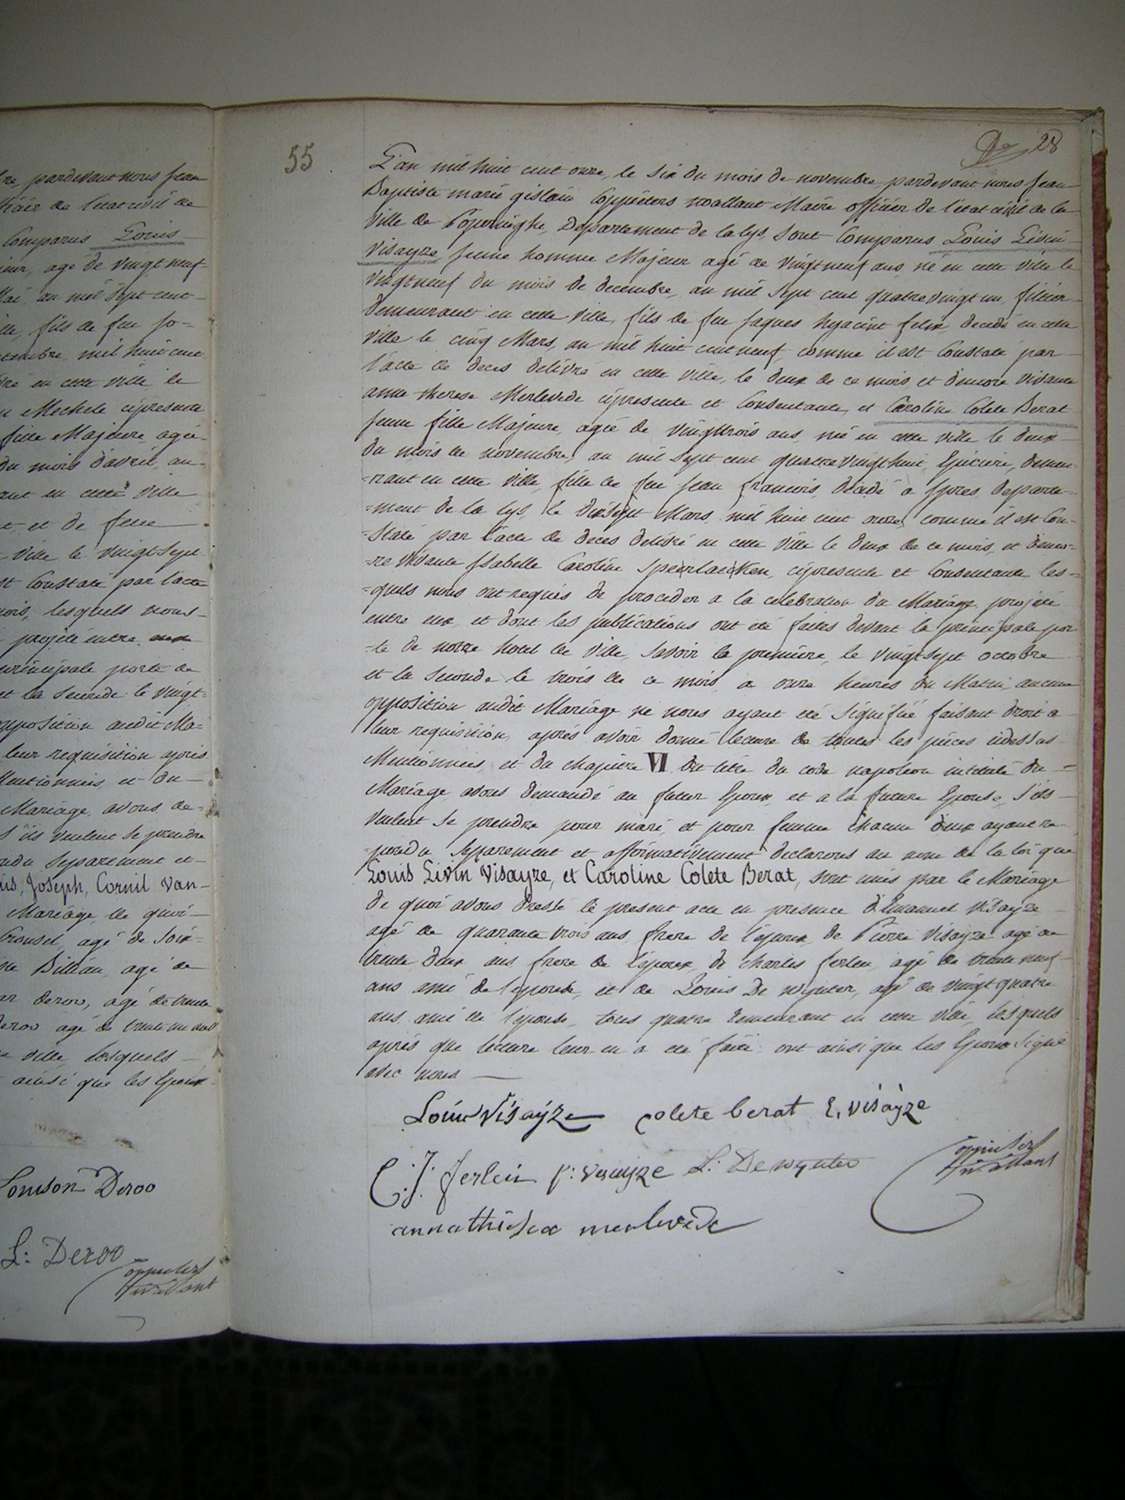 55
28
L'an mil huit cent onze, le six du mois de novembre pardevant nous jean
Baptiste marie gislain Coppieters wallant Maire officier de l'état civil de la
ville de Poperinghe, Département de la lys, sont Comparus Louis Livin
Visayze jeune homme Majeur agé de vingtneuf ans né en cette ville le
vingtneuf du mois de decembre, au mil sept cent quatrevingt un,
demeurant en cette ville, fils de feu jaques hyacint felix decedé en cette
ville le cinq Mars, au mil huit cent neuf, comme il est Constaté par
l'acte de deces delivré en cette ville, le deux de ce mois et d'encore vivante
anne therese Merlevede cipresente et Consentante, et Caroline Colete Berat
jeune fille Majeure, agée de vingttrois ans, née en cette ville le deux
du mois de novembre, au mil sept cent quatrevingthuit, Epiciere, demeu-
-rant en cette ville, fille de feu jean francois, décédé a Ypres, departe-
-ment de la lys, le dixsept Mars, mil huit cent onze, comme il est Con-
-staté par l'acte de deces delivré en cette ville le deux de ce mois, et d'enco-
-re vivante Isabelle Caroline Speirlaeken, cipresente et Consentante les-
-quels nous ont requis de proceder a la celebration du Mariage projeté
entre eux et dont les publications ont été faites devant la principale por
-te de notre hotel de ville, Savoir la premiere, le vingtsept octobre
et la seconde le trois de ce mois a onze heures du Matin, aucune
opposition audit Mariage ne nous ayant été signifiée faisant droit a
leur requisition, après avoir donné lecture de toutes les pièces cidessus
Mentionnées et du chapitre VI du titre du code napoleon intitulé du
Mariage, avons demandé au futur Epoux, et a la future Epouse, s'ils
veulent se prendre pour mari et pour femme chacun d'eux ayant re-
-pondu separement et affirmativement declarons au nom de la loi que
Louis Livin Visayze, et Caroline Colete Berat, sont unis par le Mariage
de quoi avons dressé le present acte en presence d'Emanuel Visayze
agé de quarante trois ans, frere de l'epoux, de Pierre Visayze agé de
trente deux ans frere de l'epoux, de charles ferlen, agé de trente neuf
ans ami de l'epouse, et de Louis De wynter, agé de vingt quatre
ans ami de l'epouse, tous quatre demeurant en cette ville, lesquels
après que lecture leur en a été faite ont ainsi que les Epoux signé
avec nous
Louis Visaÿze colete berat E, visaÿze
C: J: ferlein p: visaijze L: De wynter
Coppieters
wallant
annathresea merlevede
tre pardevant nous jean
officier de l'etat civil de
Comparus Louis
agé de vingtneuf
au mil sept cent
fils de feu jo-
mil huit cent
né en cette ville le
Mechele cipresente
fille Majeure, agée
du mois d'avril, au
-rant en cette ville
et de feue
ville le vingtsept
est Constaté par l'acte
mois, lesquels nous
projeté entre eux
principale porte de
et la seconde le vingt-
opposition audit Ma-
leur requisition après
Mentionnées et du
Mariage, avons de-
s'ils veulent se prendre
-pondu separement et
Louis, Joseph, Cornil Van-
Mariage de quoi
agé de soix-
Billiau, agé de
deroo, agé de trente
Deroo agé de trente un ans
ville lesquels
ainsi que les Epoux
Louison Deroo
L: Deroo
Coppieters
wallant